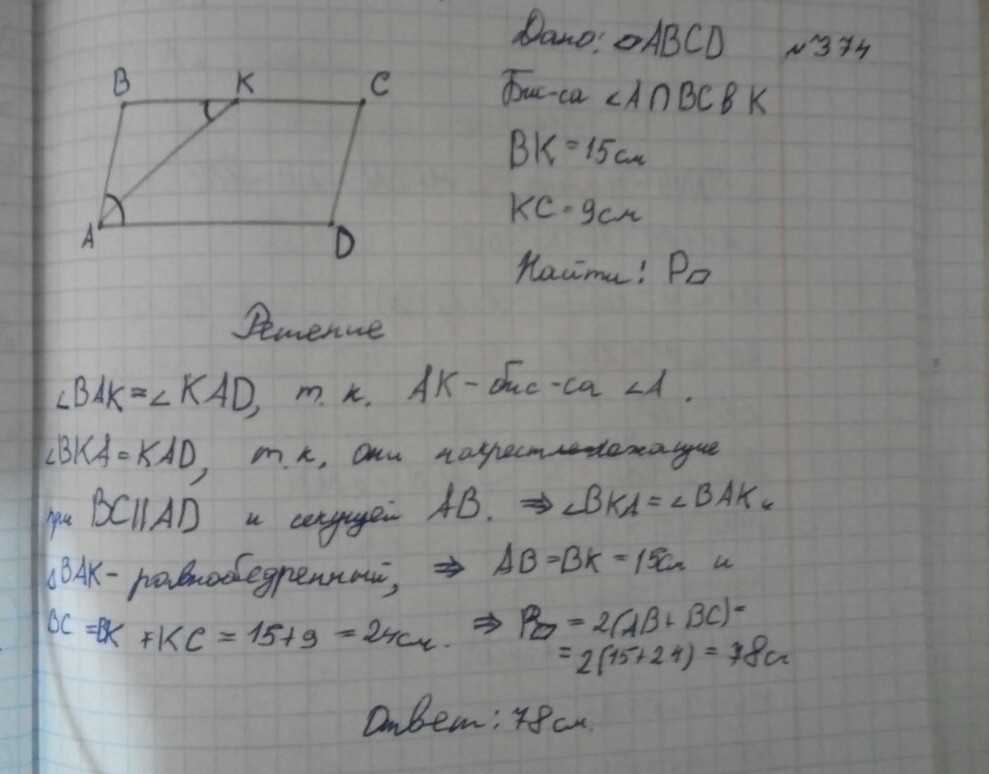 Дано: ▱ABCD №374
Бис-са ∠A∩BC в K
BK=15см
KC=9см
Найти: P▱
B K C
A D
Решение
∠BAK=∠KAD, т.к. AK-бис-са ∠A.
∠BKA=KAD, т.к, они накрестлежащие
при BC||AD и секущей AB. ⇒ ∠BKA=∠BAK и
△BAK- равнобедренный, ⇒ AB=BK=15см и
BC=BK+KC=15+9=24см. ⇒ P▱=2(AB+BC)=
=2(15+24)=78см
Ответ: 78см.